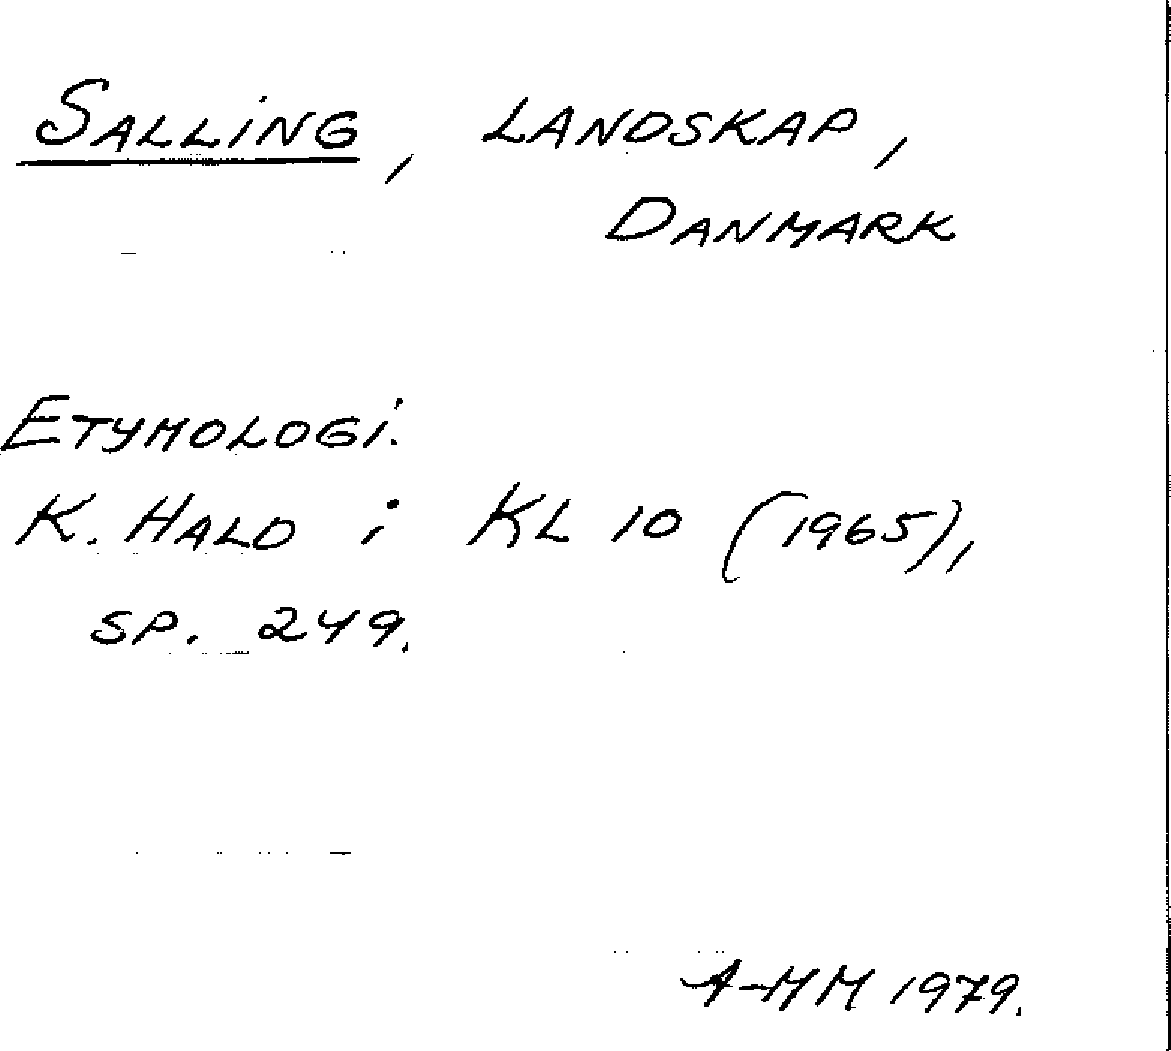 SALLING, LANDSKAP,
DANMARK
ETYMOLOGI.
K. HALD i KL 10 (1965),
SP. 249.
A-MM 1979.